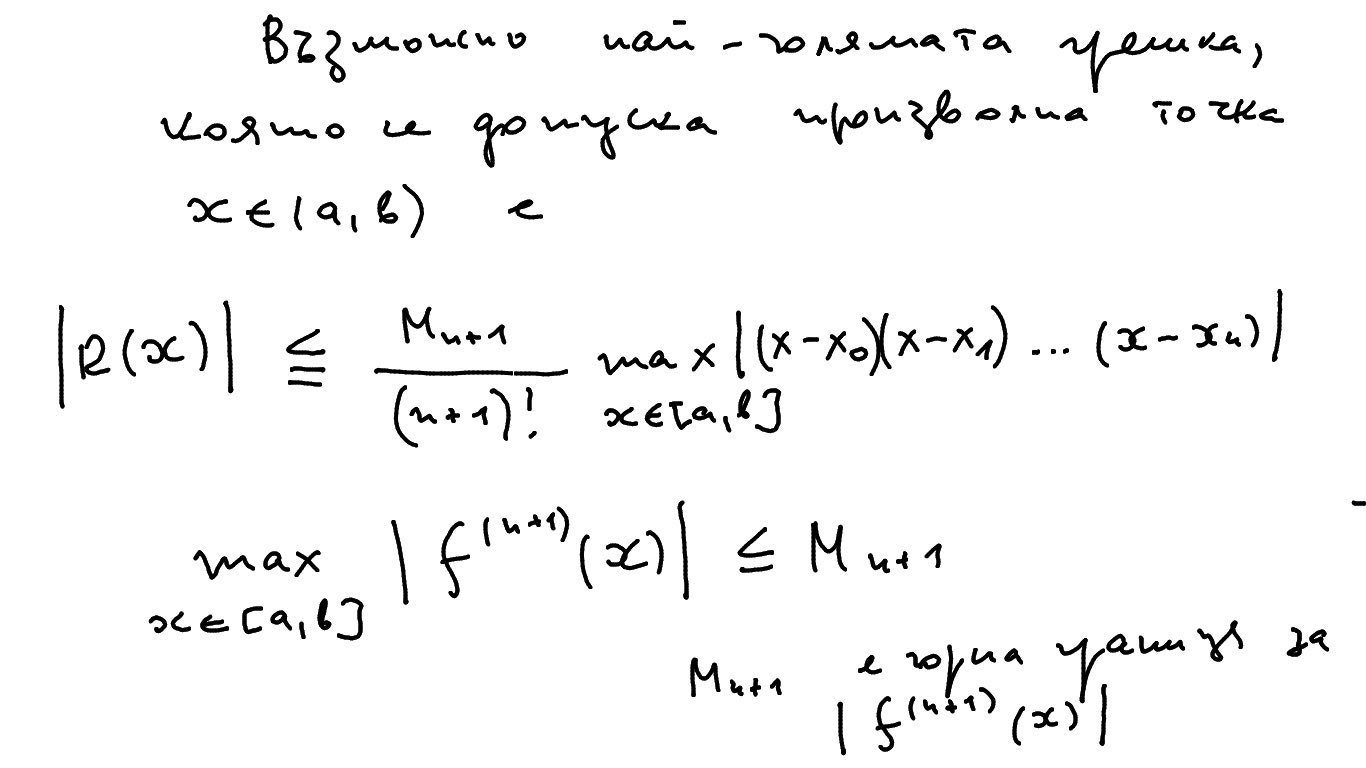 Възможно най-голямата грешка,
която се допуска произволна точка
x ∈ (a, b) е
|R(x)| ≦ M_{n+1} / (n+1)! max_{x∈[a,b]} |(x-x_0)(x-x_1) ... (x-x_n)|
max_{x∈[a,b]} |f^{(n+1)}(x)| ≤ M_{n+1}
M_{n+1} е горна граница за
|f^{(n+1)}(x)|